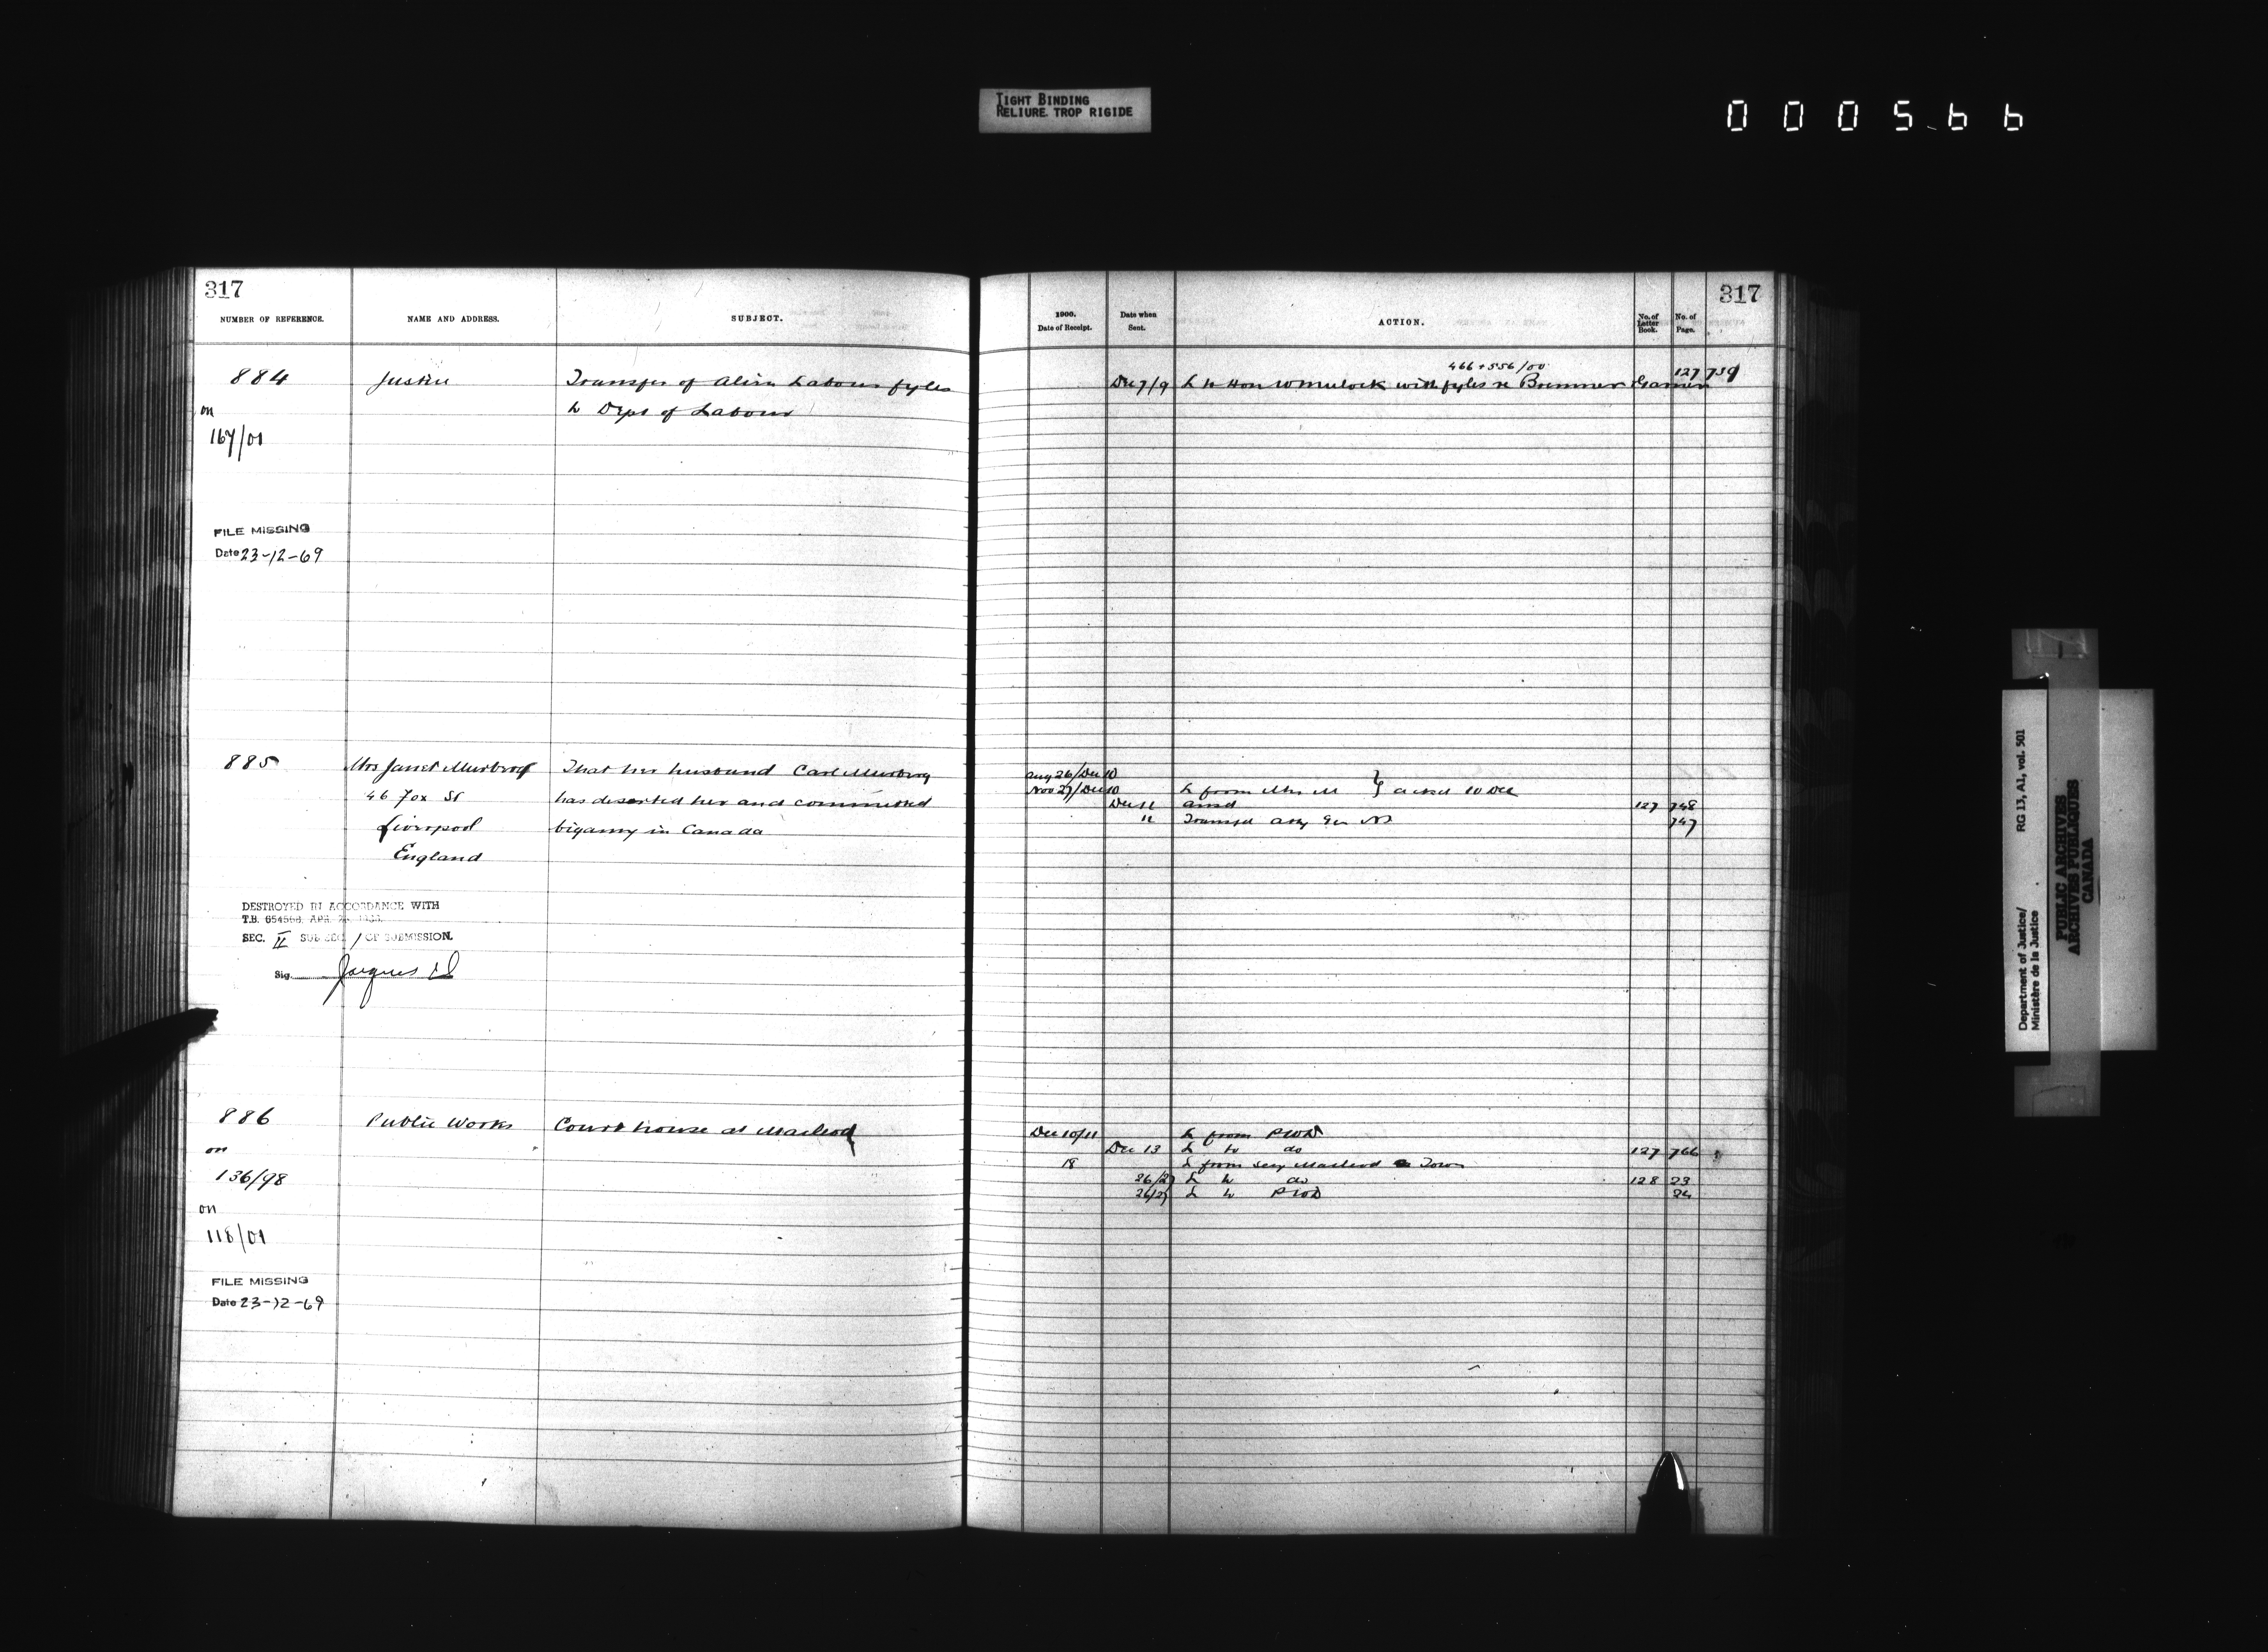 TIGHT BINDING
RELIURE TROP RIGIDE
000566
317
NUMBER OF REFERENCE.
NAME AND ADDRESS.
SUBJECT.
884
Justice
Transfer of Alien Labour fyles
to Dept of Labour
on
167/01
FILE MISSING
Date 23-12-69
885
Mrs Janet
46 Fox St
Liverpool
England
That her husband Carl
has deserted her and committed
bigamy in Canada
DESTROYED IN ACCORDANCE WITH
T.B. 654568, APR.
SEC. II SUB SEC 1 OF SUBMISSION.
Sig.
886
Public Works
Court house at Macleod
on
136/98
on
118/01
FILE MISSING
Date 23-12-69
317
1900.
Date of Receipt.
Date when
Sent.
ACTION.
No. of
Letter
Book.
No. of
Page.
466 + 556/00
Dec 7/9 L to Hon W Mulock with fyles re Bremner 127 759
Aug 26/Dec 10
Nov 27/Dec 10 L from Mrs M } acked 10 Dec
Dec 11 ansd 127 748
11 Transfd Atty Gen 747
Dec 10/11 L from PWD
Dec 13 L to do 127 766
18 L from Secy Macleod Town
26/27 L to do 128 23
26/27 L to PWD 24
Department of Justice/
Ministère de la Justice
RG 13, A1, vol. 501
PUBLIC ARCHIVES
ARCHIVES PUBLIQUES
CANADA